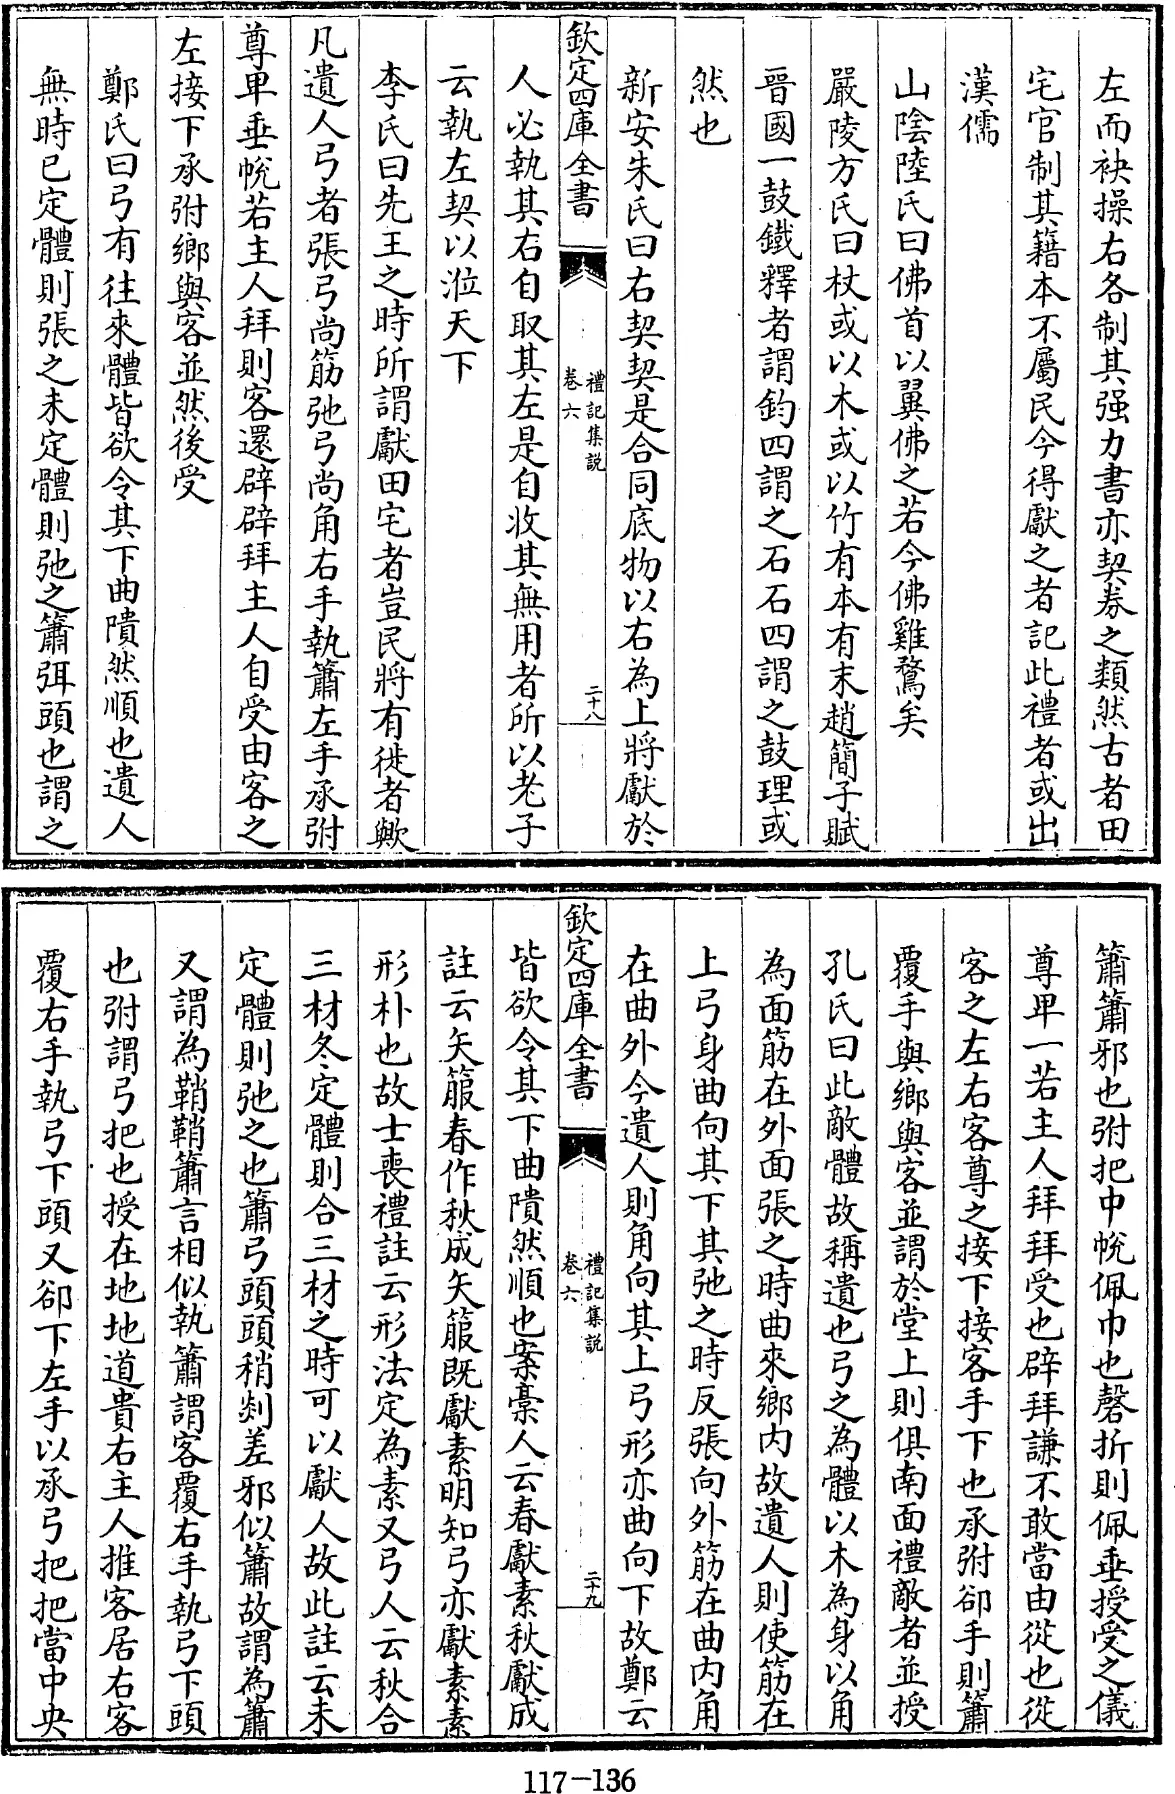 左而袂操右各制其强力書亦契券之類然古者田
宅官制其籍本不屬民今得獻之者記此禮者或出
漢儒
山陰陸氏曰佛首以翼佛之若今佛雞鶩矣
嚴陵方氏曰杖或以木或以竹有本有末趙簡子賦
晉國一鼓鐵釋者謂鈞四謂之石石四謂之鼓理或
然也
新安朱氏曰右契契是合同底物以右為上將獻於
欽定四庫全書
禮記集說
卷六
二十八
人必執其右自取其左是自收其無用者所以老子
云執左契以涖天下
李氏曰先王之時所謂獻田宅者豈民將有徙者歟
凡遺人弓者張弓尚筋弛弓尚角右手執簫左手承弣
尊卑垂帨若主人拜則客還辟辟拜主人自受由客之
左接下承弣鄉與客並然後受
鄭氏曰弓有往來體皆欲令其下曲隤然順也遺人
無時已定體則張之未定體則弛之簫弭頭也謂之
簫簫邪也弣把中帨佩巾也磬折則佩垂授受之儀
尊卑一若主人拜拜受也辟拜謙不敢當由從也從
客之左右客尊之接下接客手下也承弣卻手則簫
覆手與鄉與客並謂於堂上則俱南面禮敵者並授
孔氏曰此敵體故稱遺也弓之為體以木為身以角
為面筋在外面張之時曲來鄉內故遺人則使筋在
上弓身曲向其下其弛之時反張向外筋在曲內角
在曲外今遺人則角向其上弓形亦曲向下故鄭云
欽定四庫全書
禮記集說
卷六
二十九
皆欲令其下曲隤然順也案槀人云春獻素秋獻成
註云矢箙春作秋成矢箙既獻素明知弓亦獻素素
形朴也故士喪禮註云形法定為素又弓人云秋合
三材冬定體則合三材之時可以獻人故此註云未
定體則弛之也簫弓頭頭稍剡差邪似簫故謂為簫
又謂為鞘鞘簫言相似執簫謂客覆右手執弓下頭
也弣謂弓把也授在地地道貴右主人推客居右客
覆右手執弓下頭又卻下左手以承弓把把當中央
117-136